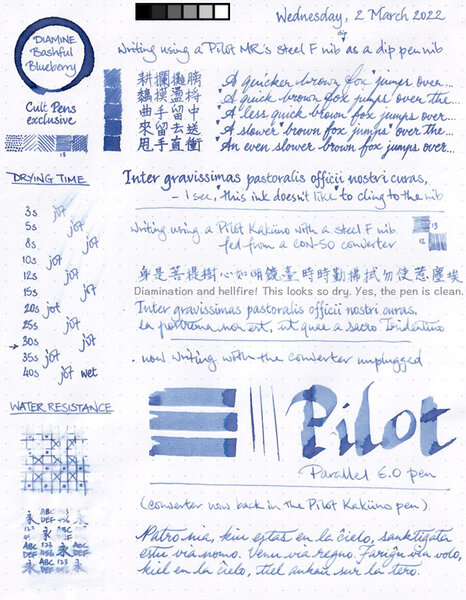 Wednesday, 2 March 2022
DIAMINE
Bashful
Blueberry
Cult Pens
exclusive
18
Writing using a Pilot MR's steel F nib as a dip pen nib
耕攔攤膀
黐摸燙捋
曲手留中
來留去送
甩手直衝
A quicker brown fox jumps over...
A quick brown fox jumps over the...
A less quick brown fox jumps over...
A slower brown fox jumps over the...
An even slower brown fox jumps over...
Inter gravissimas pastoralis officii nostri curas,
— I see, this ink doesn't like to cling to the nib
Writing using a Pilot Kaküno with a steel F nib
fed from a CON-50 converter
13
12
身是菩提樹心如明鏡臺時時勤拂拭勿使惹塵埃
Diamination and hellfire! This looks so dry. Yes, the pen is clean.
Inter gravissimas pastoralis officii nostri curas,
ea postrema non est, ut quae a sacro Tridentino
• now writing with the converter unplugged
DRYING TIME
3s jot
5s jot
8s jot
10s jot
12s jot
15s jot
20s jot
25s jot
→ 30s jot
35s jot
40s jot wet
WATER RESISTANCE
永 ABC 永 123
123 DEF 456
ABC 永 123 永
DEF
ABC 123 永 ABC
DEF 456 DEF
永 ABC 永 123
Pilot
Parallel 6.0 pen
(converter now back in the Pilot Kaküno pen)
Patro nia, kiu estas en la ĉielo, sanktigata
estu via nomo. Venu via regno. Fariĝu via volo,
kiel en la ĉielo, tiel ankaŭ sur la tero.